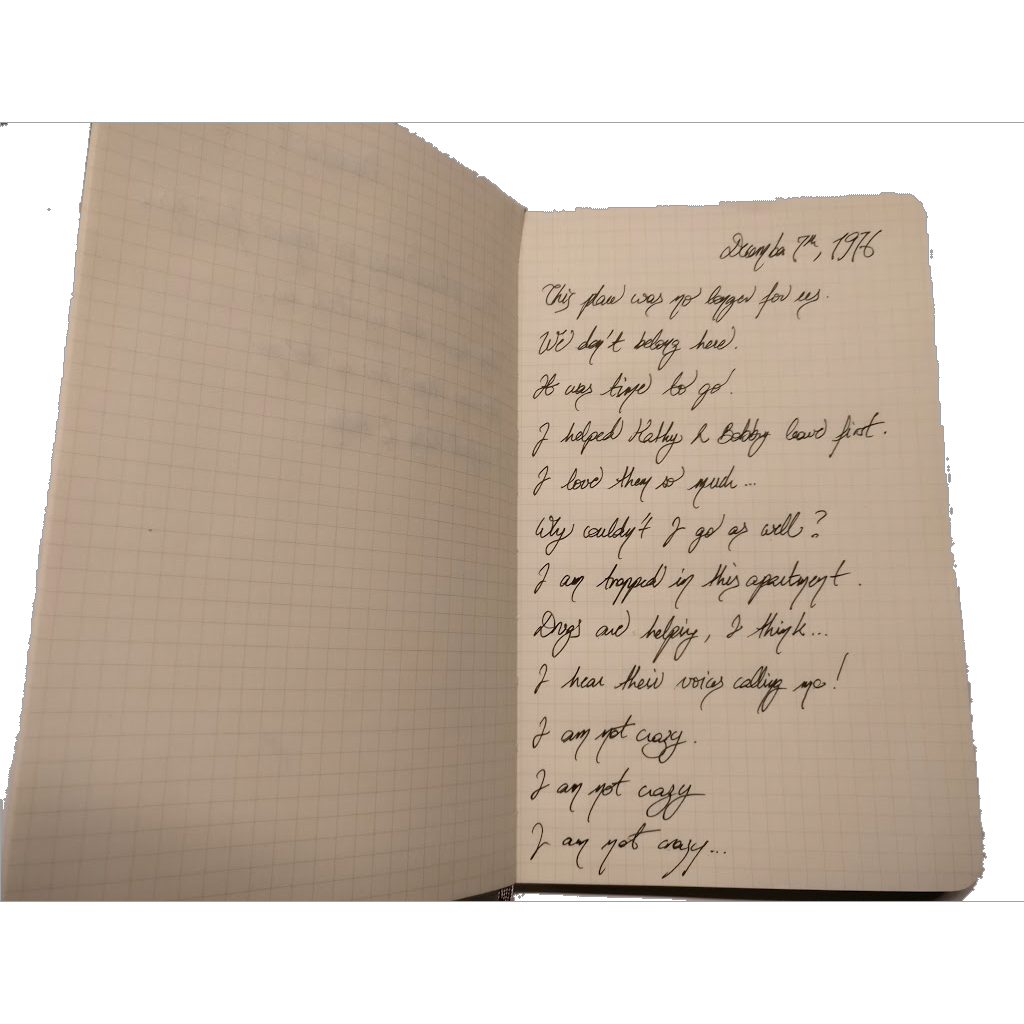 December 7th, 1976
This place was no longer for us.
We don't belong here.
It was time to go.
I helped Kathy & Bobby leave first.
I love them so much...
Why couldn't I go as well?
I am trapped in this apartment.
Drugs are helping, I think...
I hear their voices calling me!
I am not crazy.
I am not crazy
I am not crazy...